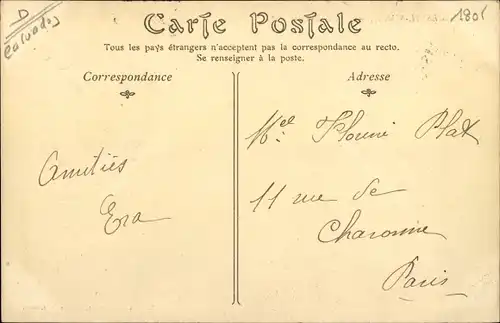 D
Calvados
1801
Carte Postale
Tous les pays étrangers n'acceptent pas la correspondance au recto.
Se renseigner à la poste.
Correspondance
Adresse
Amitiés
Era
Mel
11 rue de
Charonne
Paris